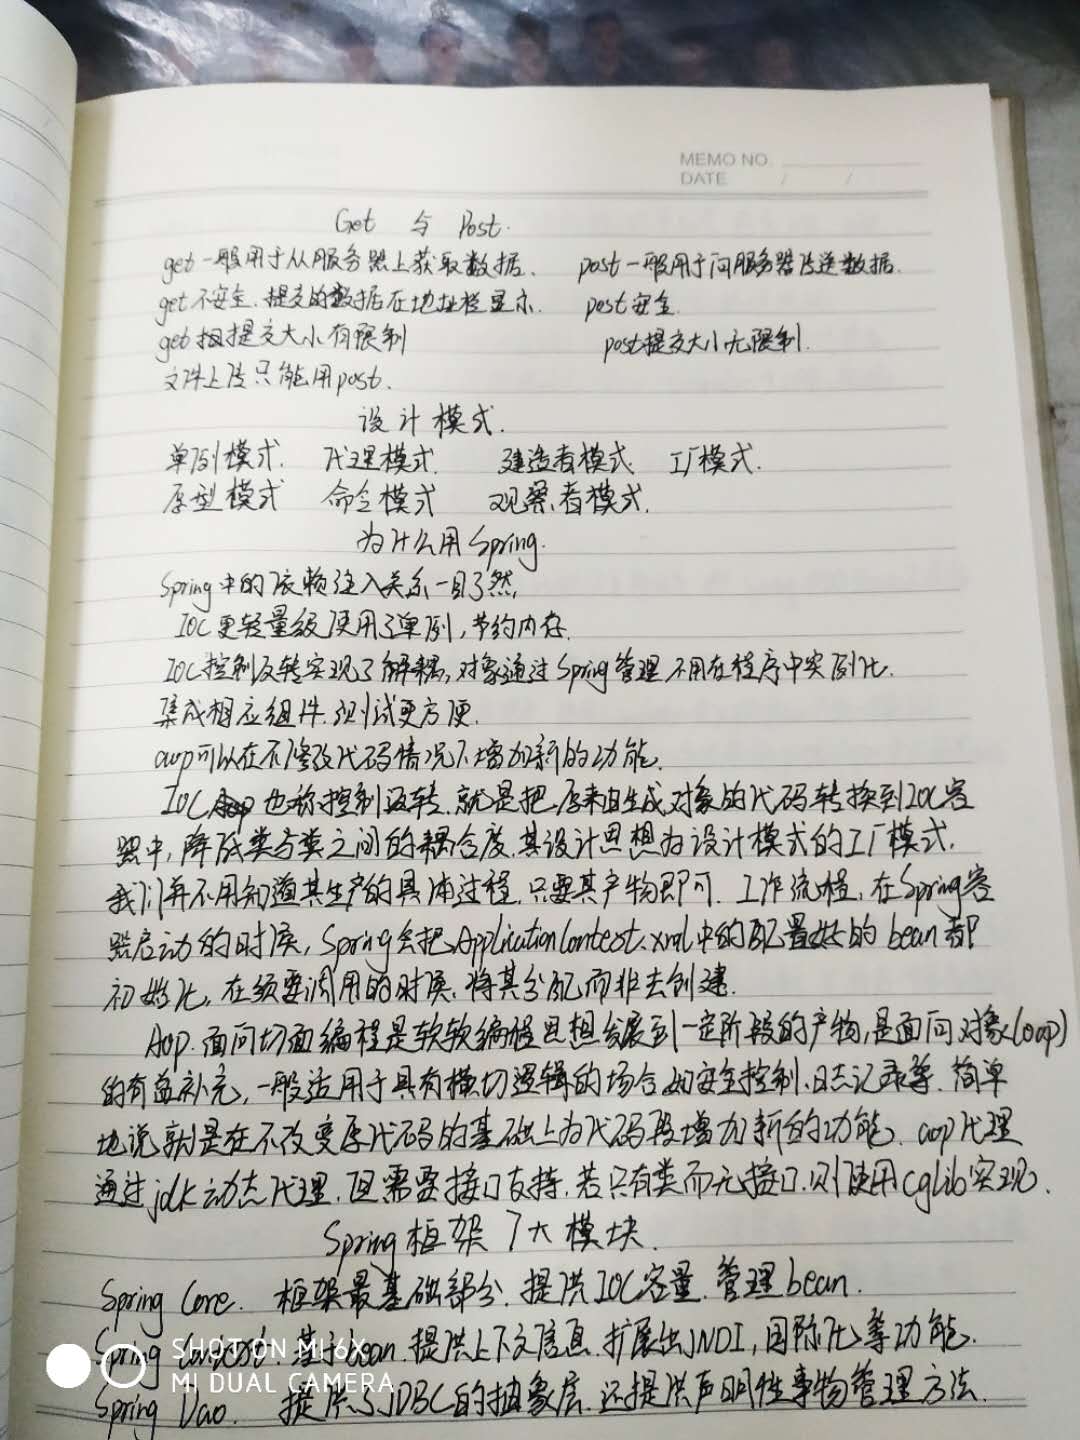 MEMO NO.
DATE / /
Get 与 Post.
get 一般用于从服务器上获取数据. post 一般用于向服务器传送数据.
get 不安全.提交的数据在地址栏显示. post 安全.
get 提交大小有限制 post提交大小无限制.
文件上传只能用post.
设计模式.
单例模式. 代理模式. 建造者模式. 工厂模式.
原型模式 命令模式 观察者模式.
为什么用Spring.
Spring中的依赖注入关系一目了然,
IOC更轻量级使用了单例,节约内存.
IOC控制反转实现了解耦,对象通过Spring管理不用在程序中实例化.
集成相应组件.测试更方便.
aop可以在不修改代码情况下增加新的功能.
IOC 也称控制反转.就是把原来由生成对象的代码转换到IOC容
器中,降低类与类之间的耦合度.其设计思想为设计模式的工厂模式.
我们并不用知道其生产的具体过程.只要其产物即可.工作流程,在Spring容
器启动的时候,Spring会把ApplicationContext.xml中的配置好的bean都
初始化,在须要调用的时候,将其分配而非去创建.
Aop.面向切面编程是软软编程思想发展到一定阶段的产物,是面向对象(oop)
的有益补充,一般适用于具有横切逻辑的场合如安全控制.日志记录等.简单
地说就是在不改变原代码的基础上为代码段增加新的功能.aop代理
通过jdk动态代理.但需要接口支持.若只有类而无接口.则使用cglib实现.
Spring框架7大模块.
Spring Core. 框架最基础部分.提供IOC容量.管理bean.
Spring Context.基于bean.提供上下文信息.扩展出JNDI,国际化等功能.
Spring Dao. 提供了JDBC的抽象层.还提供声明性事物管理方法.
SHOT ON MI 6X
MI DUAL CAMERA